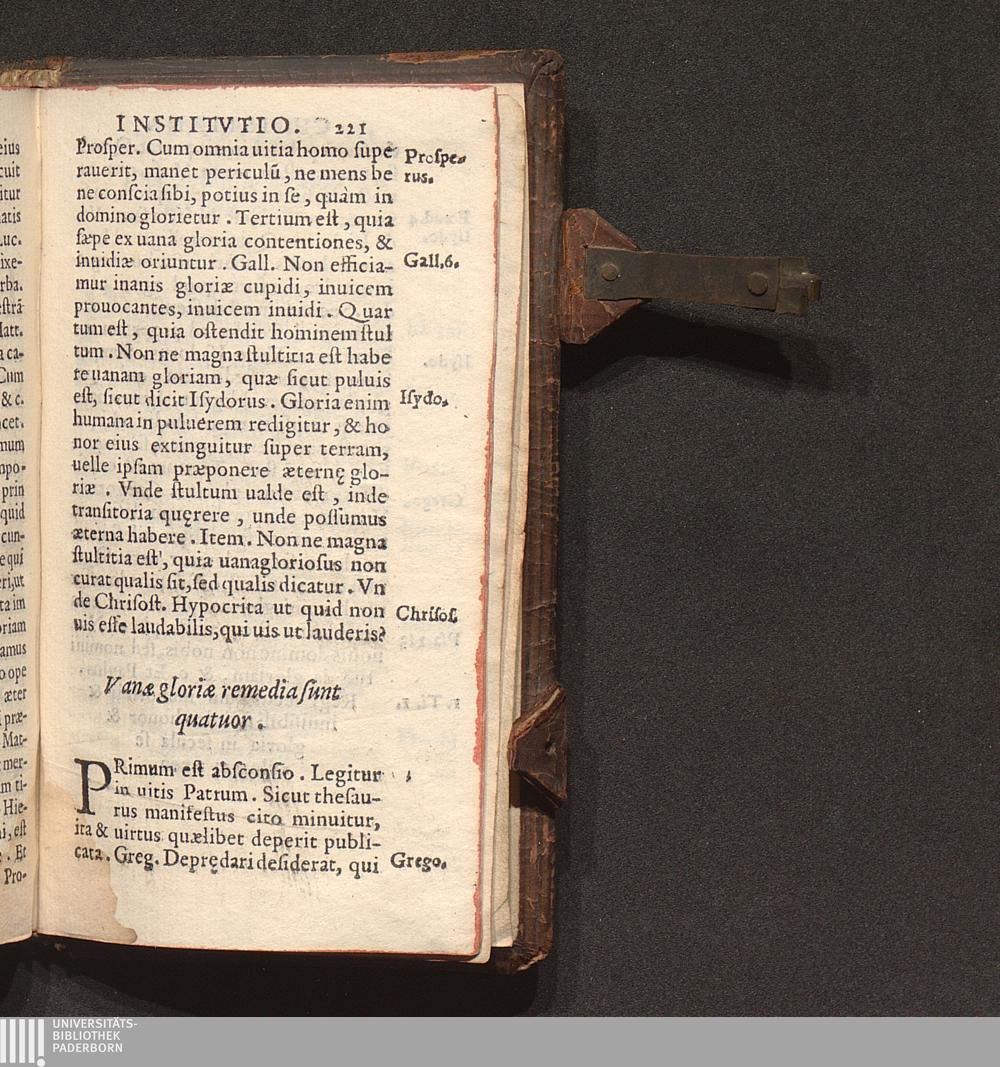 INSTITVTIO. 221
Prosper. Cum omnia uitia homo supe
rauerit, manet periculũ, ne mens be
ne conscia sibi, potius in se, quàm in
domino glorietur. Tertium est, quia
sæpe ex uana gloria contentiones, &
inuidiæ oriuntur. Gall. Non efficia-
mur inanis gloriæ cupidi, inuicem
prouocantes, inuicem inuidi. Quar
tum est, quia ostendit hominem stul
tum. Non ne magna stultitia est habe
re uanam gloriam, quæ sicut puluis
est, sicut dicit Isydorus. Gloria enim
humana in puluerem redigitur, & ho
nor eius extinguitur super terram,
uelle ipsam præponere æternę glo-
riæ. Vnde stultum ualde est, inde
transitoria quęrere, unde possumus
æterna habere. Item. Non ne magna
stultitia est, quia uanagloriosus non
curat qualis sit, sed qualis dicatur. Vn
de Chrisost. Hypocrita ut quid non
uis esse laudabilis, qui uis ut lauderis?
Vanæ gloriæ remedia sunt
quatuor.
PRimum est absconsio. Legitur
in uitis Patrum. Sicut thesau-
rus manifestus cito minuitur,
ita & uirtus quælibet deperit publi-
cata. Greg. Deprędari desiderat, qui
Prospe-
rus.
Gall.6.
Isydo.
Chrisos.
1
Grego.
eius
cuit
itur
atis
Luc.
ixe-
rba.
strã-
Matt.
a ca-
Cum
& c.
cet.
mum
mpo-
prin
quid
cun-
e qui
eri, ut
ta im
oriam
amus
o ope
æter
i præ-
Mat-
mer-
m ti-
Hie-
i, est
. Et
Pro-
UNIVERSITÄTS-
BIBLIOTHEK
PADERBORN